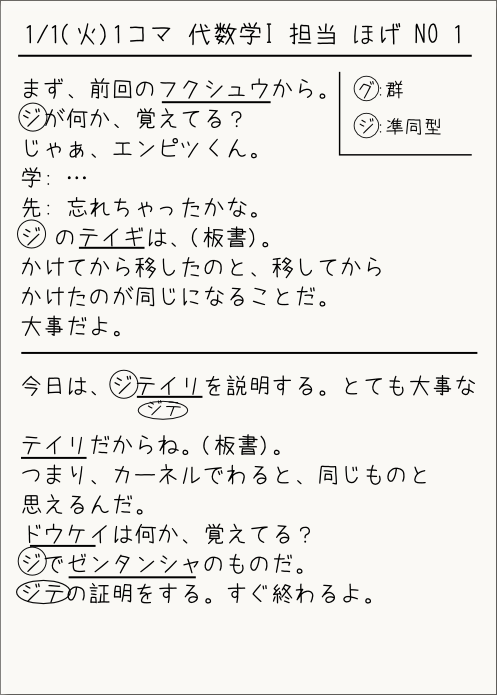 1/1(火)1コマ 代数学I 担当 ほげ NO 1
まず、前回のフクシュウから。
グ:群
ジ:準同型
ジが何か、覚えてる？
じゃぁ、エンピツくん。
学: …
先: 忘れちゃったかな。
ジ のテイギは、(板書)。
かけてから移したのと、移してから
かけたのが同じになることだ。
大事だよ。
今日は、ジテイリを説明する。とても大事な
ジテ
テイリだからね。(板書)。
つまり、カーネルでわると、同じものと
思えるんだ。
ドウケイは何か、覚えてる？
ジでゼンタンシャのものだ。
ジテの証明をする。すぐ終わるよ。